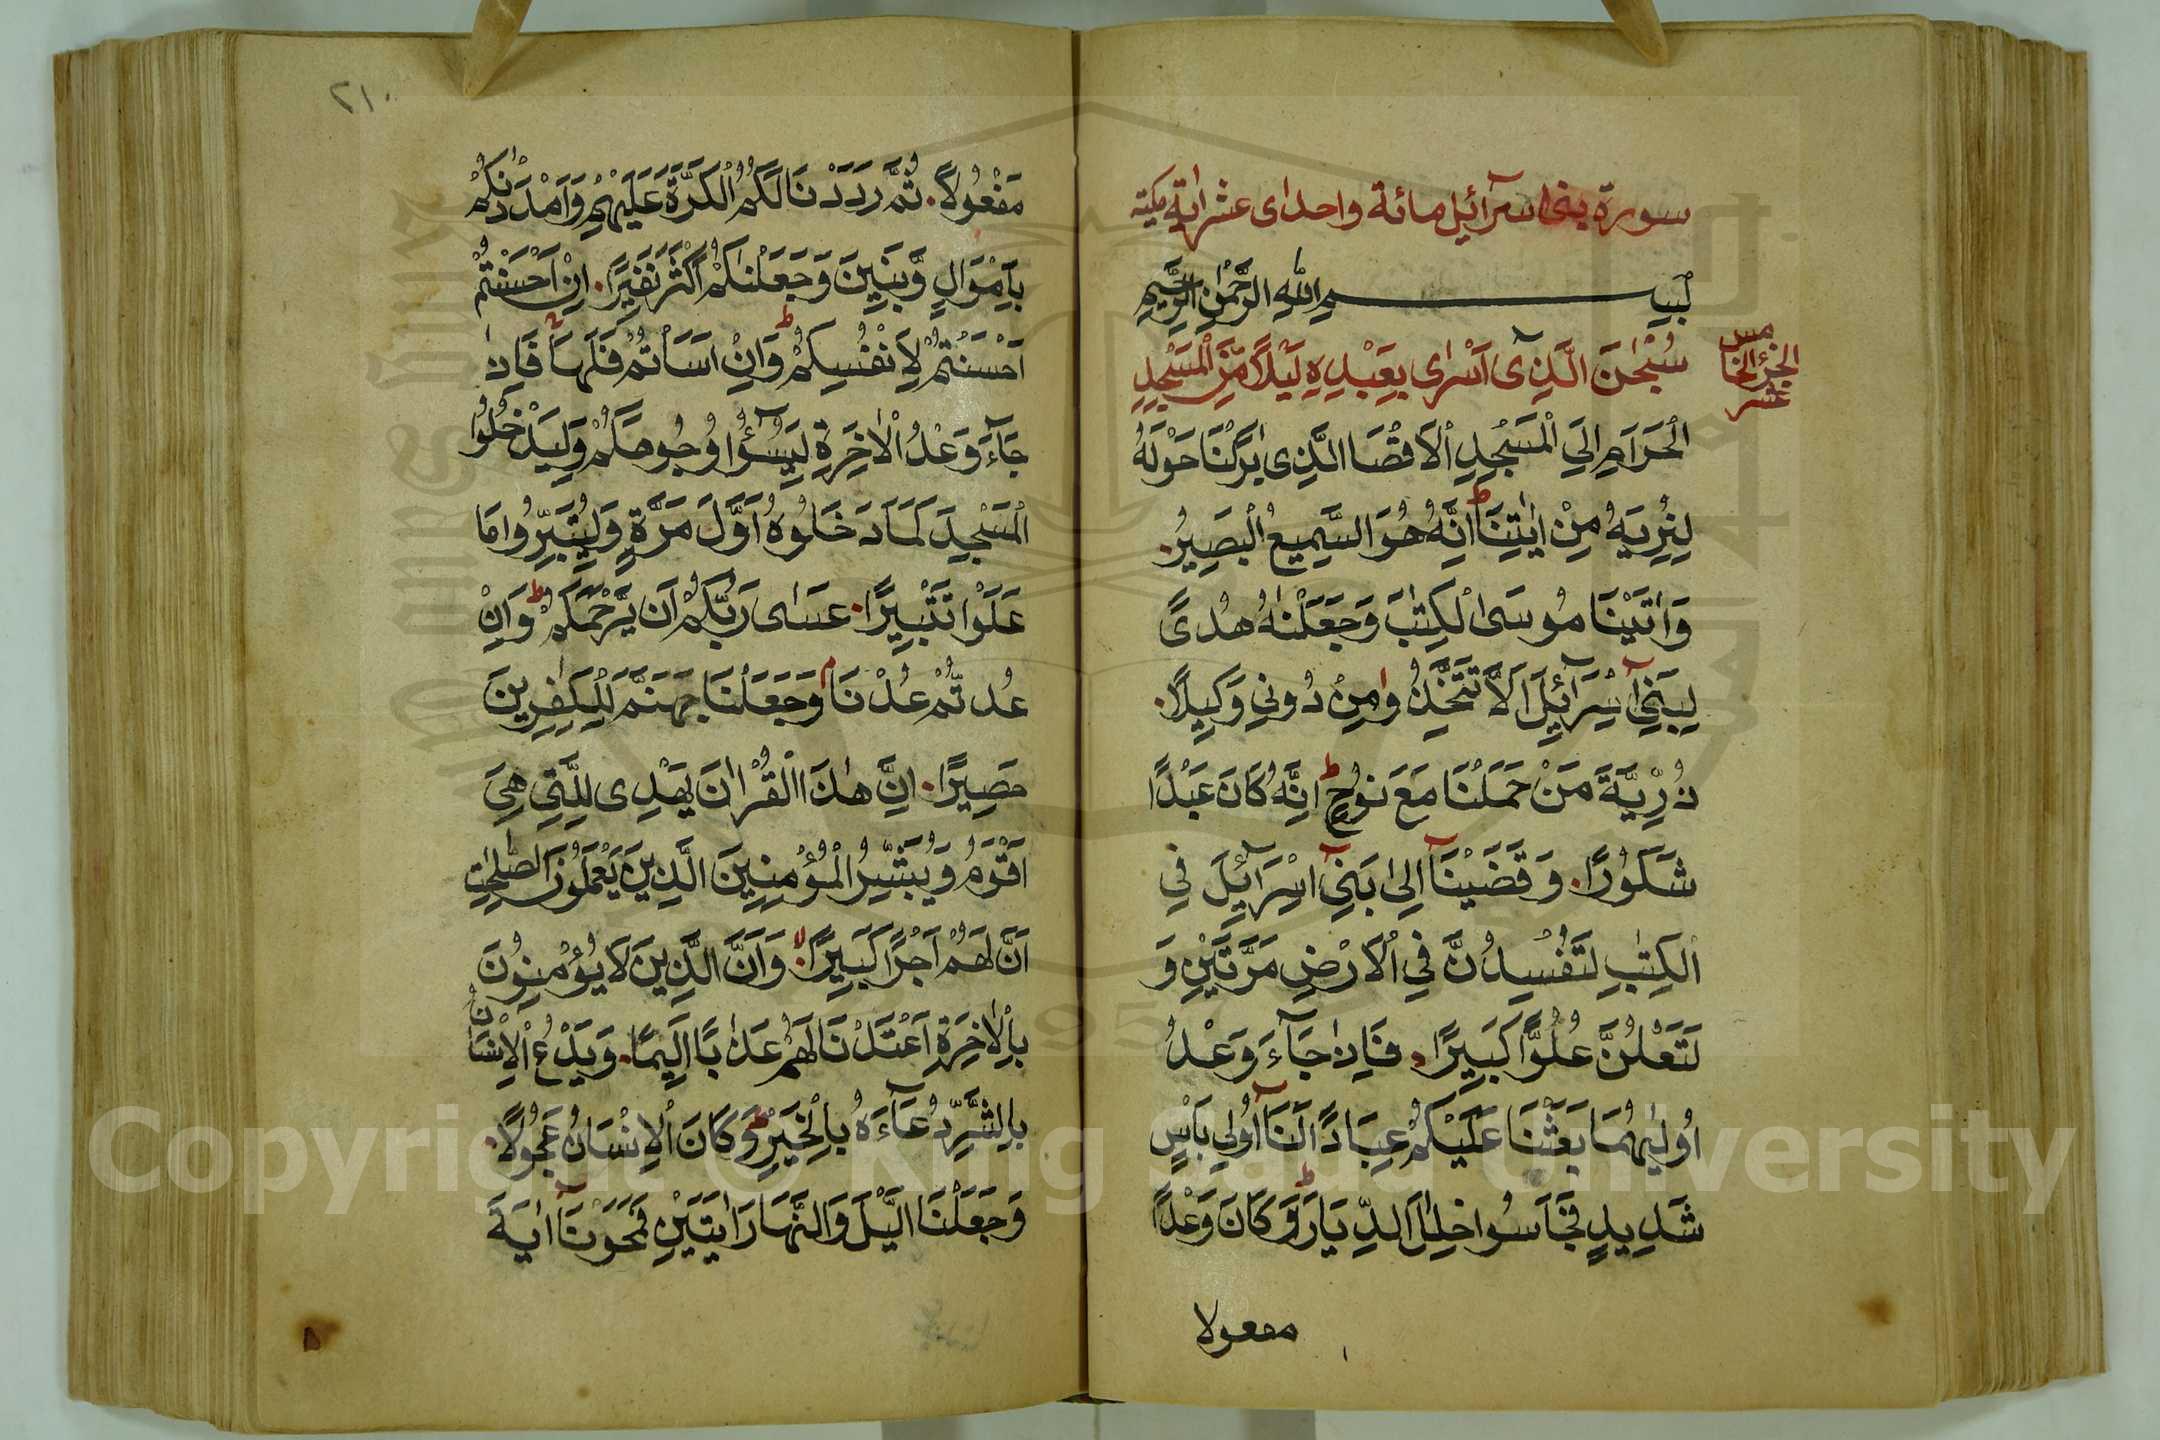 سورة بنی اسرآئیل مائة واحدای عشر ایة مکیة
بِسْمِ اللّٰهِ الرَّحْمٰنِ الرَّحِیْمِ
سُبْحٰنَ الَّذِیٓ اَسْرٰی بِعَبْدِهٖ لَیْلًا مِّنَ الْمَسْجِدِ
الجزء الخامس عشر
الْحَرَامِ اِلَی الْمَسْجِدِ الْاَقْصَا الَّذِی بٰرَكْنَا حَوْلَهُ
لِنُرِیَهُ مِنْ اٰیٰتِنَا ط اِنَّهُ هُوَ السَّمِیعُ الْبَصِیرُ.
وَاٰتَیْنَا مُوسَی الْكِتٰبَ وَجَعَلْنٰهُ هُدًی
لِبَنِیٓ اِسْرَآئِیلَ اَلَّا تَتَّخِذُوا مِنْ دُونِی وَكِیلًا.
ذُرِّیَّةَ مَنْ حَمَلْنَا مَعَ نُوحٍ ط اِنَّهُ كَانَ عَبْدًا
شَكُورًا. وَقَضَیْنَآ اِلٰی بَنِیٓ اِسْرَآئِیلَ فِی
الْكِتٰبِ لَتُفْسِدُنَّ فِی الْاَرْضِ مَرَّتَیْنِ وَ
لَتَعْلُنَّ عُلُوًّا كَبِیرًا. فَاِذٰا جَآءَ وَعْدُ
اُولٰیهُمَا بَعَثْنَا عَلَیْكُمْ عِبَادًا لَنَآ اُولِی بَاْسٍ
شَدِیدٍ فَجَاسُوا خِلٰلَ الدِّیَارِ ط وَكَانَ وَعْدًا
مفعولا
٢١٠
مَفْعُولًا. ثُمَّ رَدَدْنَا لَكُمُ الْكَرَّةَ عَلَیْهِمْ وَاَمْدَدْنٰكُمْ
بِاَمْوَالٍ وَّبَنِینَ وَجَعَلْنٰكُمْ اَكْثَرَ نَفِیرًا. اِنْ اَحْسَنْتُمْ
اَحْسَنْتُمْ لِاَنْفُسِكُمْ ط وَاِنْ اَسَاْتُمْ فَلَهَا فَاِذٰا
جَآءَ وَعْدُ الْاٰخِرَةِ لِیَسُوٓؤُا وُجُوهَكُمْ وَلِیَدْخُلُوا
الْمَسْجِدَ كَمَا دَخَلُوهُ اَوَّلَ مَرَّةٍ وَلِیُتَبِّرُوا مَا
عَلَوْا تَتْبِیرًا. عَسٰی رَبُّكُمْ اَن یَّرْحَمَكُمْ ط وَاِنْ
عُدتُّمْ عُدْنَا م وَجَعَلْنَا جَهَنَّمَ لِلْكٰفِرِینَ
حَصِیرًا. اِنَّ هٰذَا الْقُرْاٰنَ یَهْدِی لِلَّتِی هِیَ
اَقْوَمُ وَیُبَشِّرُ الْمُؤْمِنِینَ الَّذِینَ یَعْمَلُونَ الصّٰلِحٰتِ
اَنَّ لَهُمْ اَجْرًا كَبِیرًا. لا وَاَنَّ الَّذِینَ لَا یُؤْمِنُونَ
بِالْاٰخِرَةِ اَعْتَدْنَا لَهُمْ عَذَابًا اَلِیمًا. وَیَدْعُ الْاِنْسَانُ
بِالشَّرِّ دُعَآءَهُ بِالْخَیْرِ ط وَكَانَ الْاِنْسَانُ عَجُولًا.
وَجَعَلْنَا الَّیْلَ وَالنَّهَارَ اٰیَتَیْنِ فَمَحَوْنَآ اٰیَةَ
Copyright © King Saud University